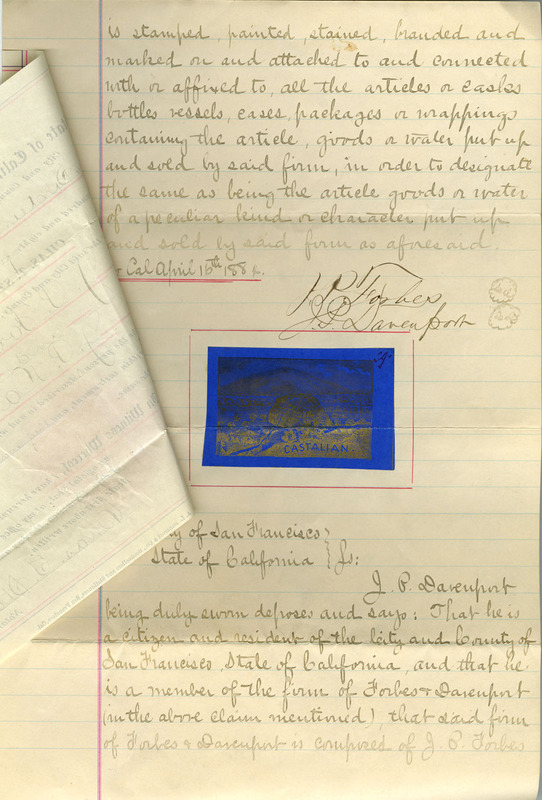 is stamped, painted, stained, branded and
marked on and attached to and connected
with or affixed to, all the articles or casks
bottles vessels, cases, packages or wrappings
containing the article, goods or water put up
and sold by said firm, in order to designate
the same as being the article goods or water
of a peculiar kind or character put up
and sold by said firm as aforesaid.
Cal April 16th 188
J. P. Forbes
J. P. Davenport
CASTALIAN
y of San Francisco
State of California } Ss:
J. P. Davenport
being duly sworn deposes and says: That he is
a citizen and resident of the City and County of
San Francisco, State of California, and that he
is a member of the firm of Forbes & Davenport
(in the above claim mentioned), that said firm
of Forbes & Davenport is composed of J. P. Forbes